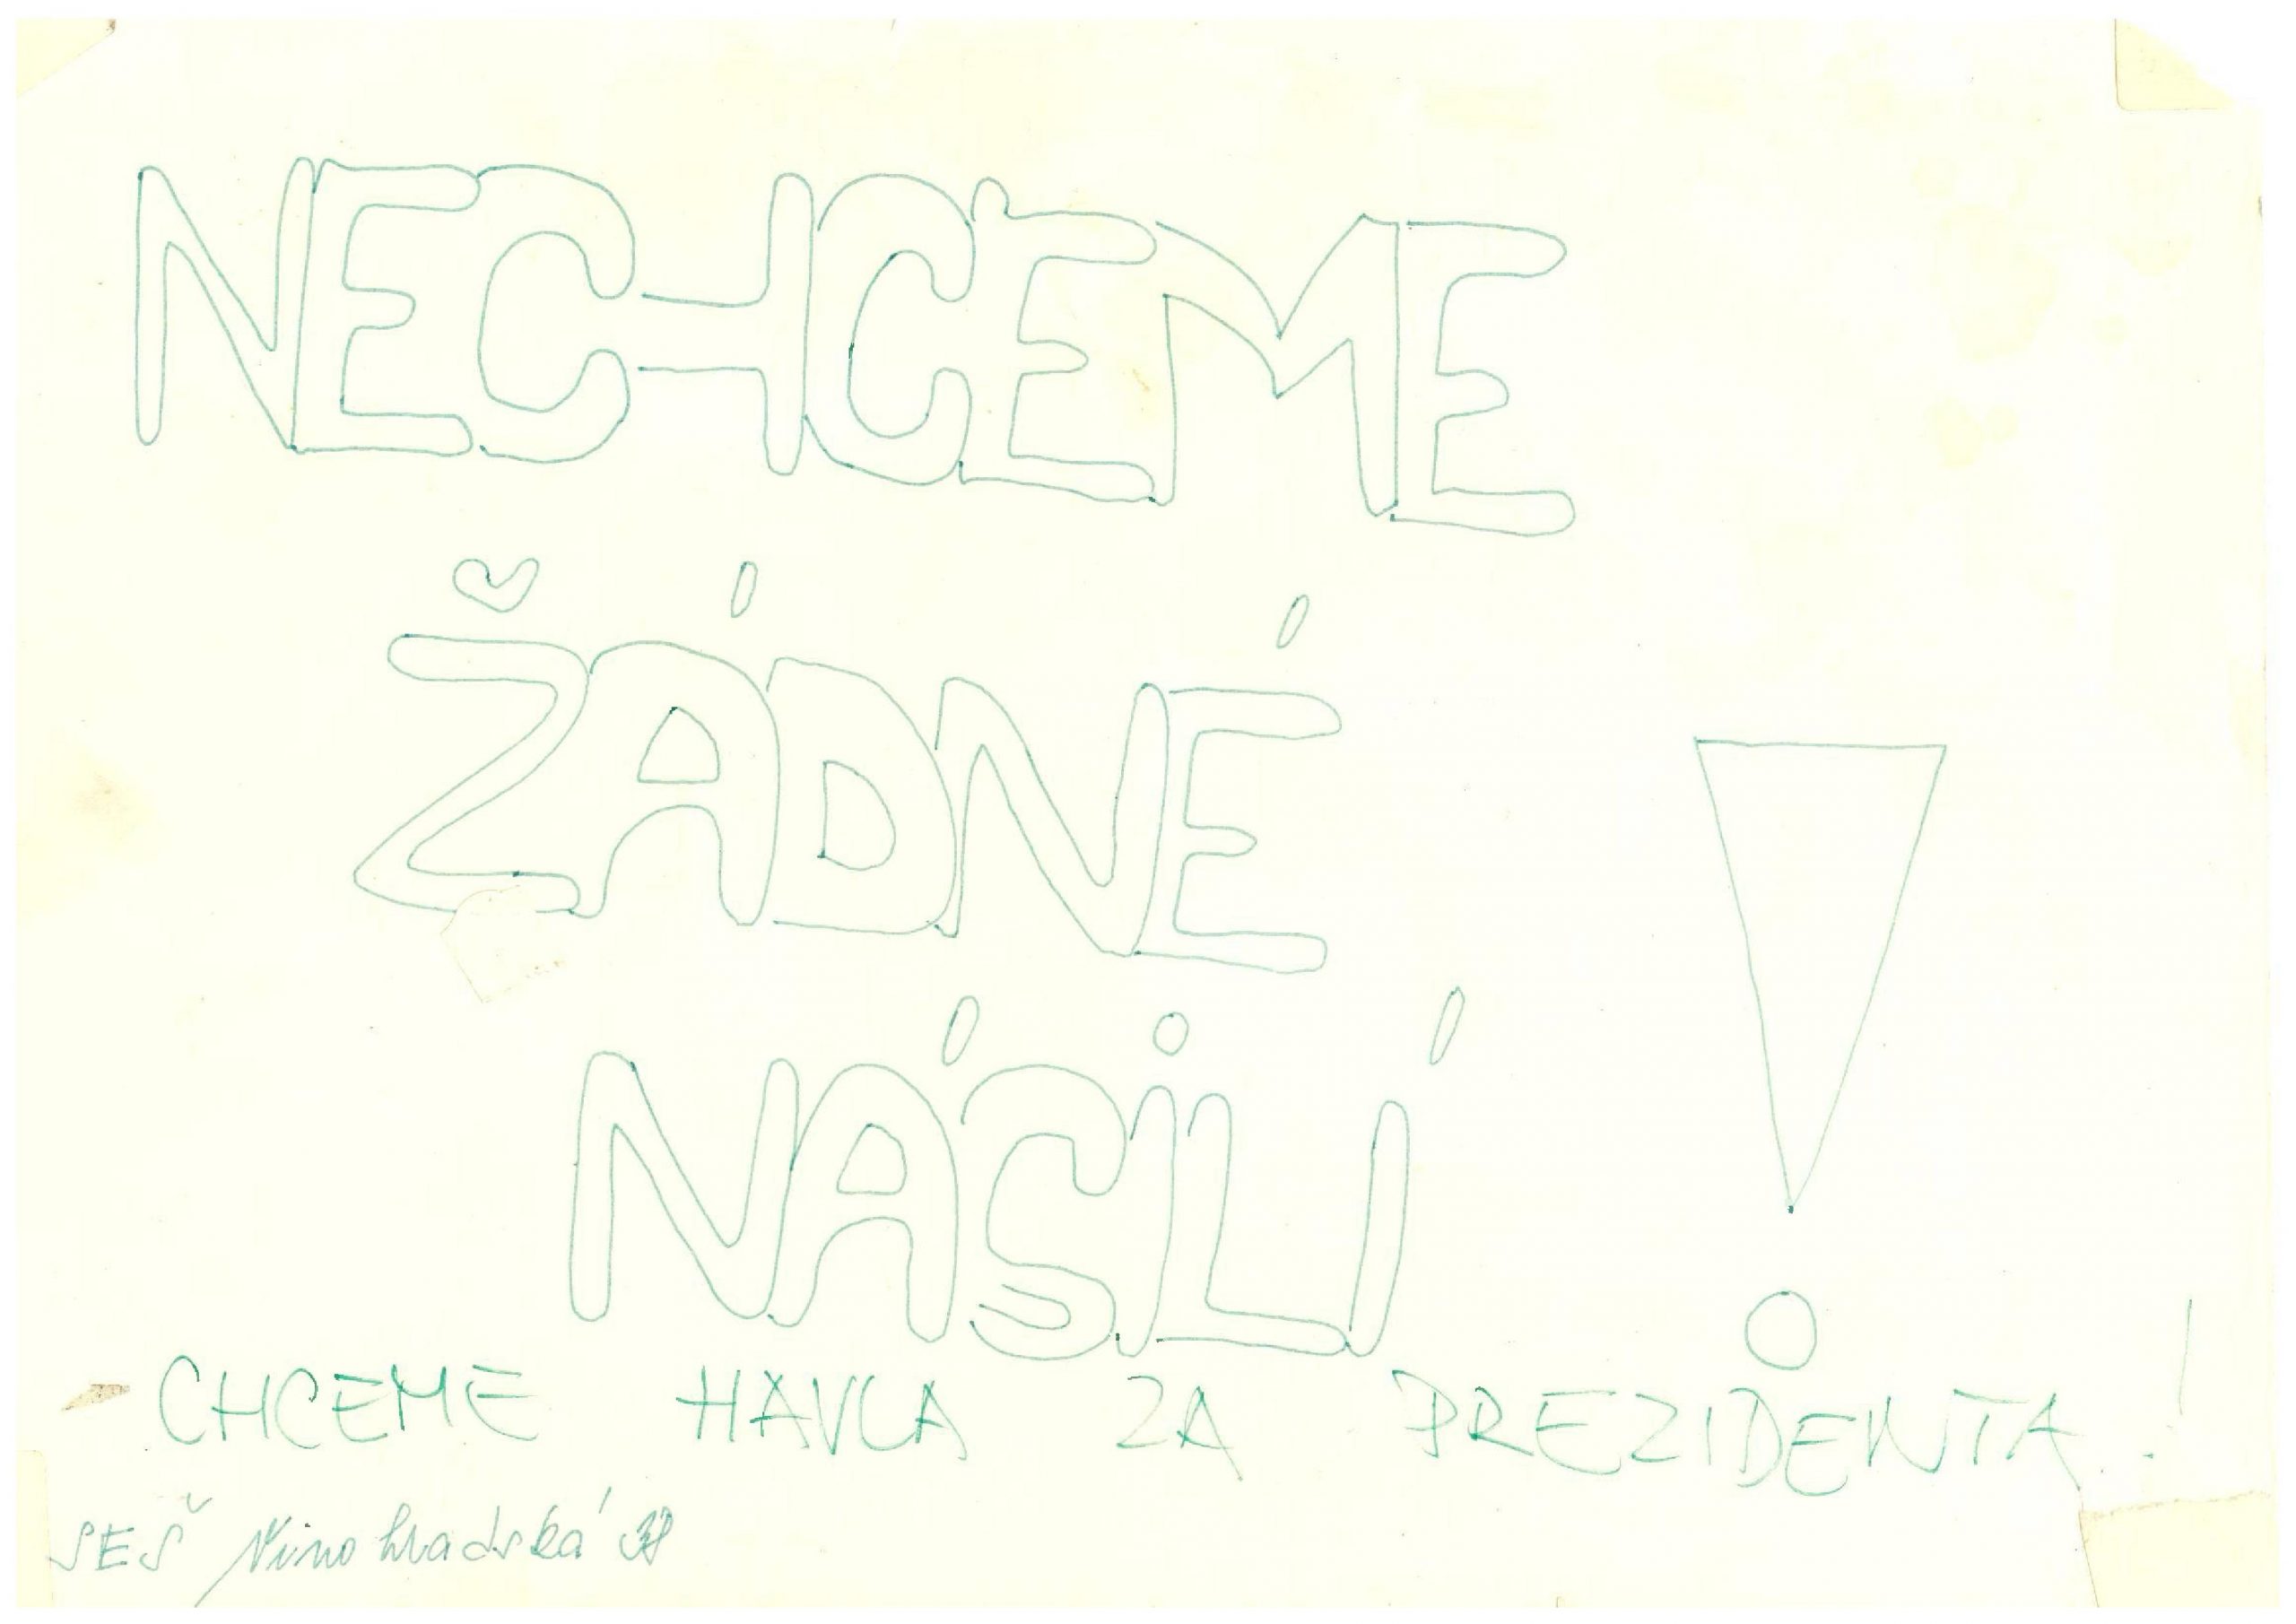 NECHCEME
ŽÁDNÉ
NÁSILÍ !
CHCEME HAVLA ZA PREZIDENTA !
SEŠ Vinohradská 38